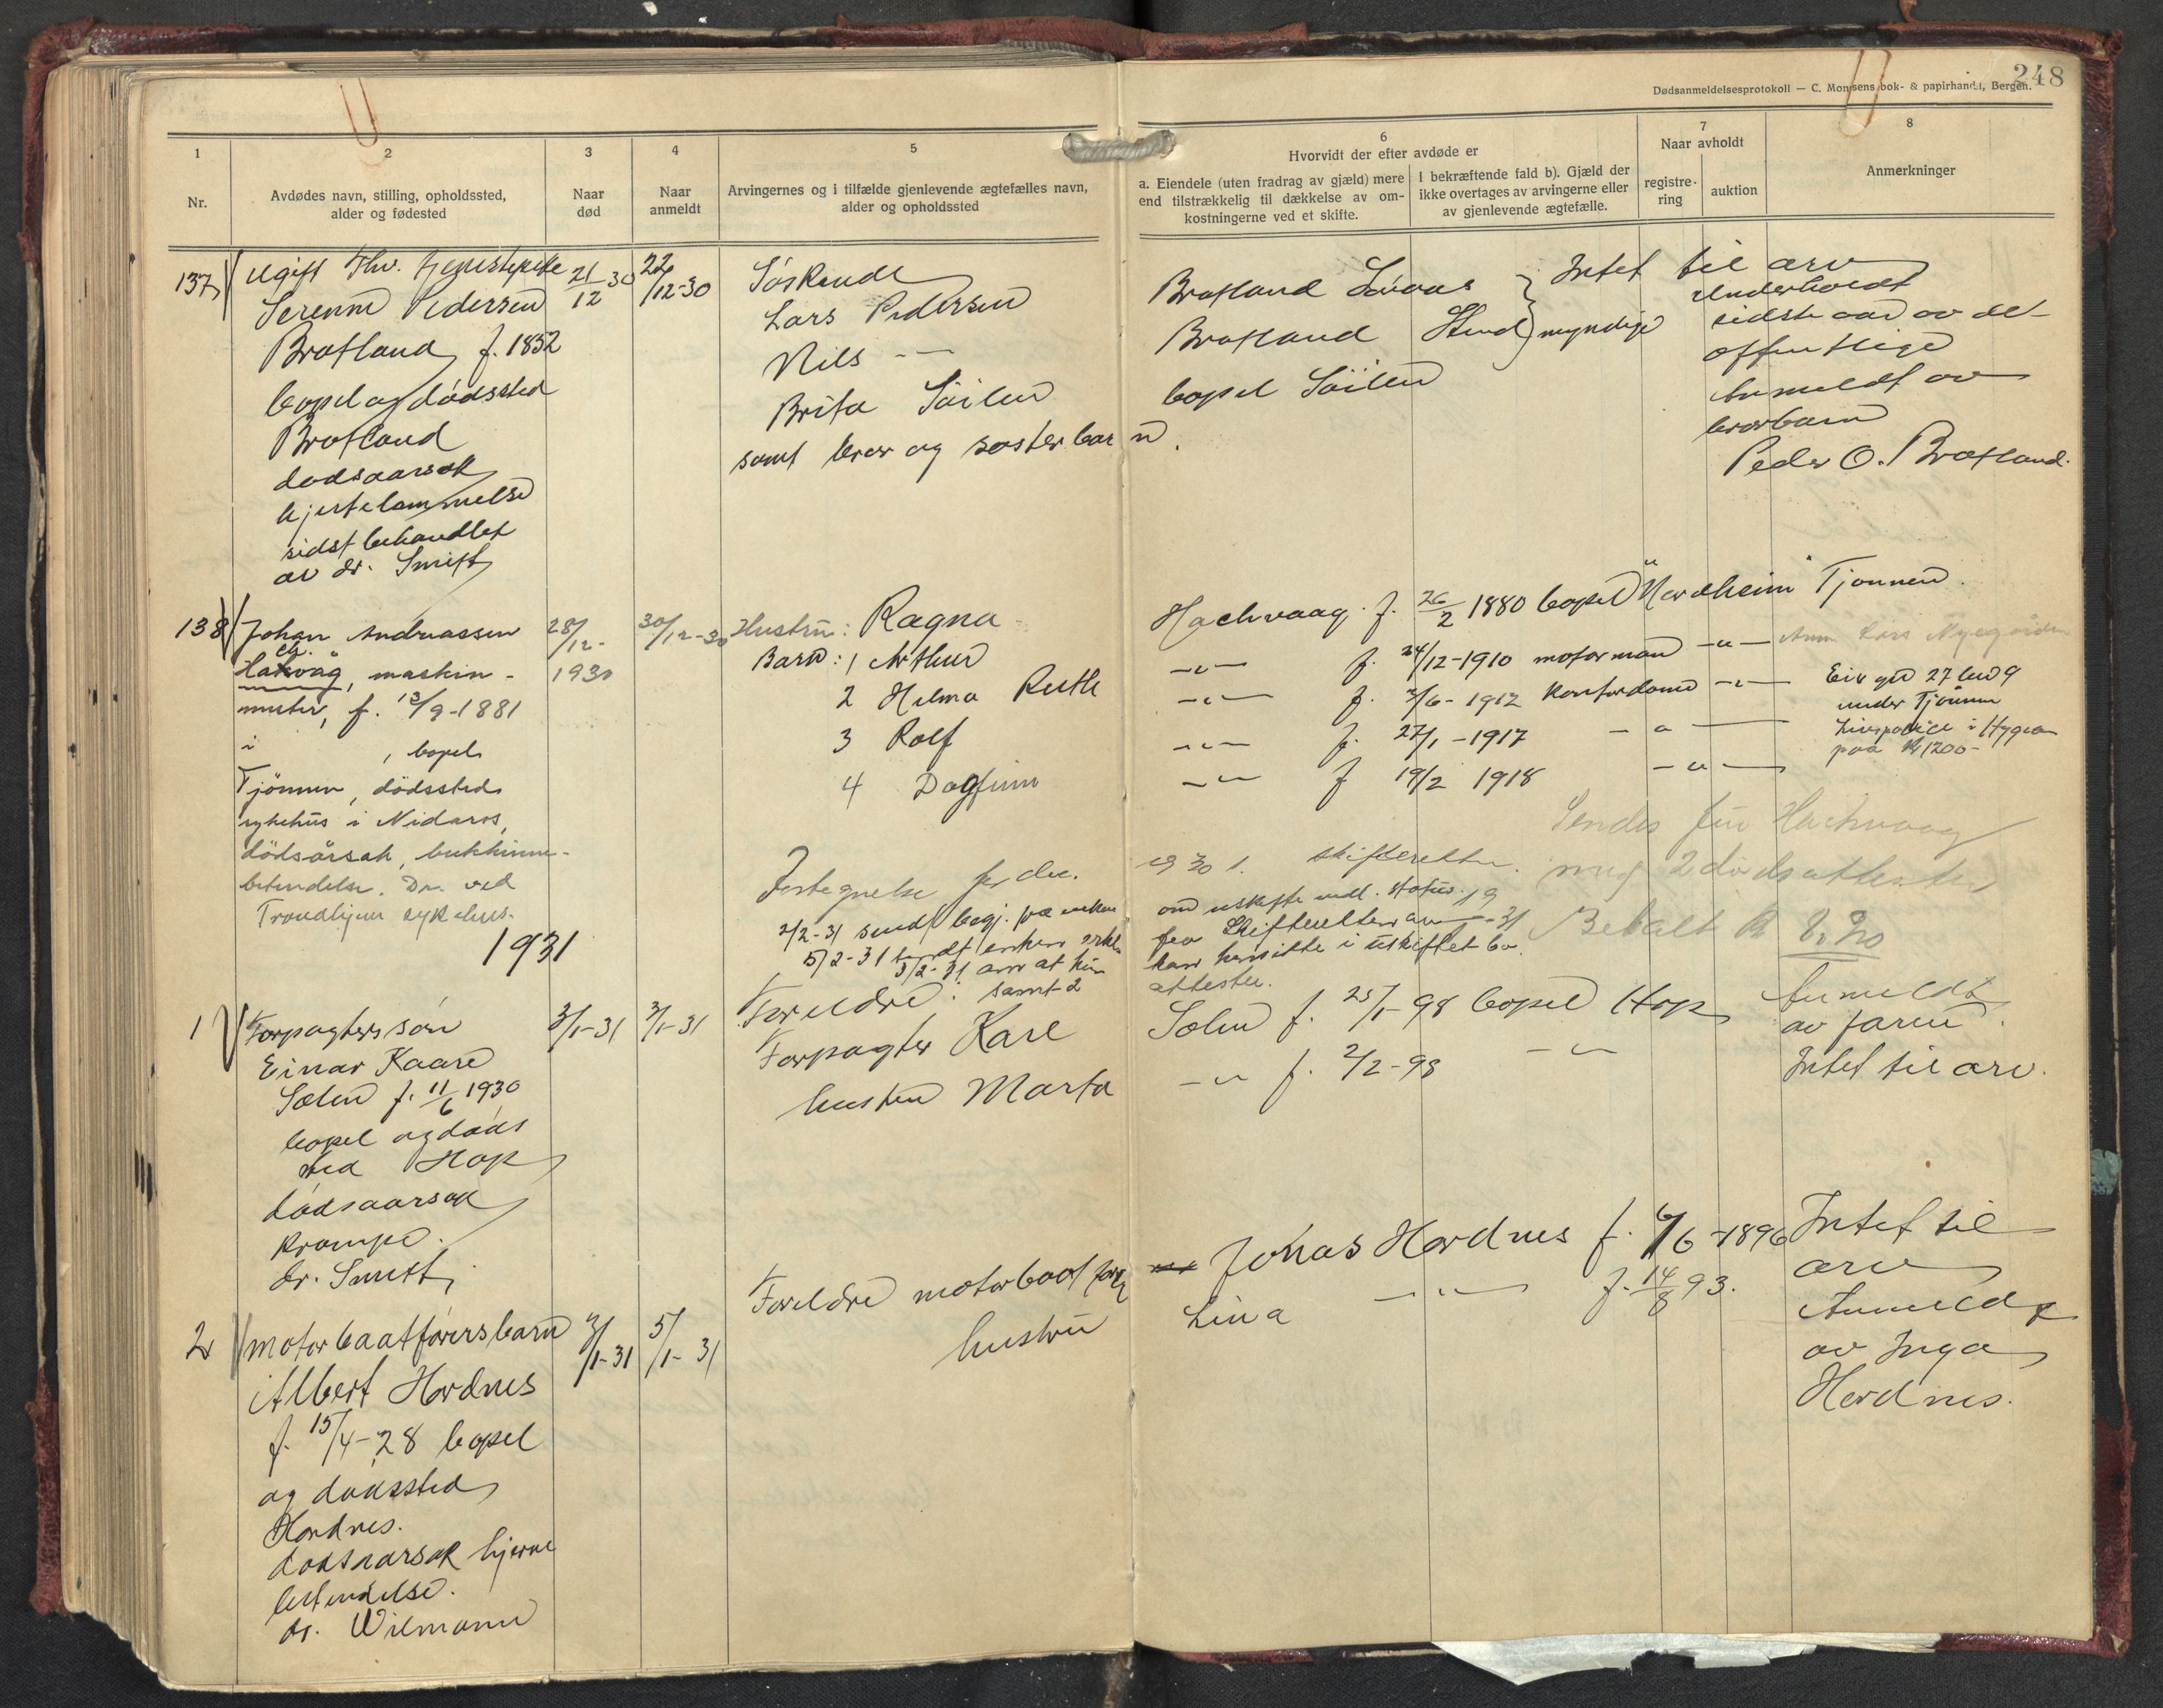 248
Dødsanmeldelsesprotokoll — C. Monsens bok- & papirhandel, Bergen.
1
Nr.
2
Avdødes navn, stilling, opholdssted,
alder og fødested
3
Naar
død
4
Naar
anmeldt
5
Arvingernes og i tilfælde gjenlevende ægtefælles navn,
alder og opholdssted
6
Hvorvidt der efter avdøde er
a. Eiendele (uten fradrag av gjæld) mere
end tilstrækkelig til dækkelse av om-
kostningerne ved et skifte.
I bekræftende fald b). Gjæld der
ikke overtages av arvingerne eller
av gjenlevende ægtefælle.
7
Naar avholdt
registre-
ring
auktion
8
Anmerkninger
137
Ugift fhv. tjenestepike
Serenne Pedersen
Bratland f. 1852
bopel og dødssted
Bratland
dødsaarsak
hjertelammelse
sidst behandlet
av dr. Smitt
21/12 30
22/12-30
Søskende
Lars Pedersen
Nils —
Brita Söilen
samt bror og søster barn.
Bratland
Bratland Stend
bopel Söilen
myndige
Intet til arv
Underholdt
sidste aar av det
offentlige
Anmeldt av
brorbarn
Peder O. Bratland.
138
Johan Andreassen
Hakvåg, maskin-
mester, f. 13/9-1881
i , bopel
Tjönnen, dödssted
sykehus i Nidaros,
dödsårsak, bukhinne-
betendelse. Dr. ved
Trondhjem sykehus.
28/12-
1930
30/12-30
Hustru: Ragna
Barn: 1 Arthur
2 Helma Ruth
3 Rolf
4 Dagfinn
Hachvaag f. 26/2 1880 bopel "Nordheim" Tjønnen.
—"— f. 24/12-1910 motormand —"—
—"— f. 2/6-1912 kontordame —"—
—"— f. 27/1-1917 —"—
—"— f 19/2 1918 —"—
Eier gno 27 bno 9
under Tjönnen
Livspolice i Hygea
paa Kr 1200-
Sendes fru Hachvaag
2 dødsattester
Betalt Kr 8.20
2/2-31 sendt begj. fra enken
om uskifte
5/2-31 sendt enken
fra Skifteretten
3/2-31 om at hun
kan hensitte i uskiftet bo.
samt 2
attester.
1931
1
Forpagters søn
Einar Kaare
Sælen f. 11/6 1930
bopel og døds
sted Hop
dødsaarsak
krampe.
dr. Smitt.
3/1-31
3/1-31
Foreldre:
Forpagter Karl
hustru Marta
Sælen f. 25/1-98 bopel Hop
—"— f. 2/2-98 —"—
Anmeldt
av faren.
Intet til arv.
2
Motorbaatførers barn
Albert Hordnes
f. 15/4-28 bopel
og dødssted
Hordnes.
dødsaarsak hjerne
betendelse.
dr. Wilmann
5/1-31
Foreldre motorbaatfører
Jonas Hordnes f. 6/6-1896
hustru
Lina —"— f. 14/8 93.
Intet til
arv
Anmeldt
av Inga
Hordnes.